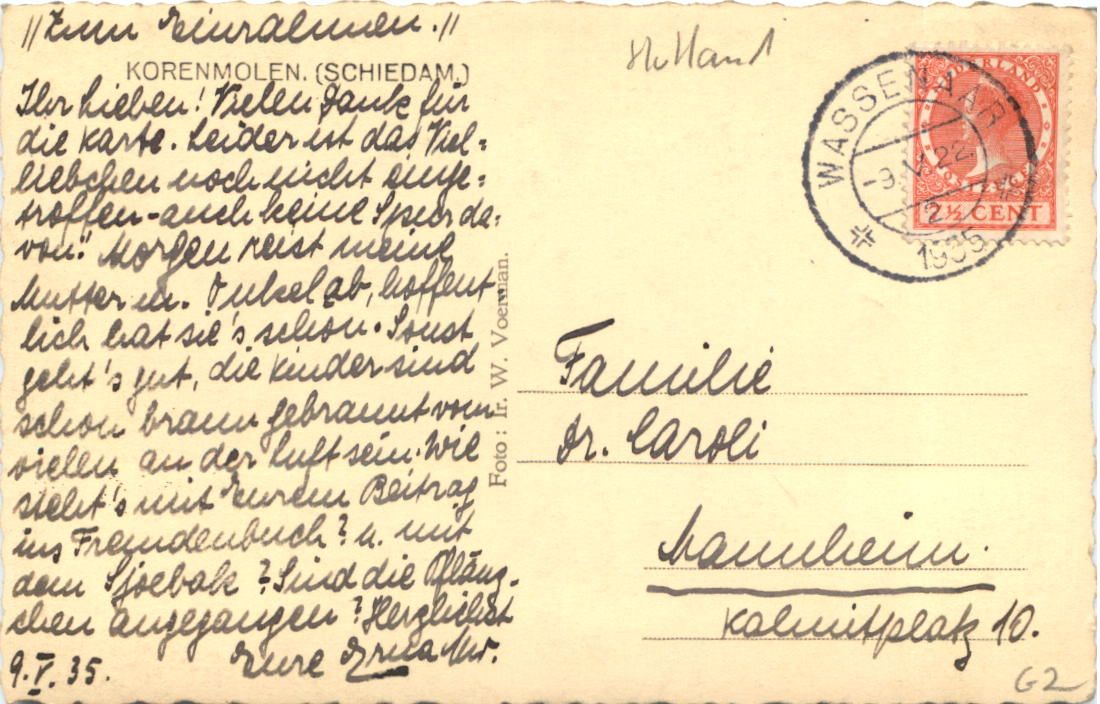 "Zum Einrahmen."
KORENMOLEN. (SCHIEDAM.)
Ihr Lieben! Vielen Dank für
die Karte. Leider ist das Viel=
liebchen noch nicht einge=
troffen - auch keine Spur da=
von." Morgen reist meine
Mutter m. Onkel ab, hoffent
lich hat sie's schön. Sonst
geht's gut, die Kinder sind
schon braun gebrannt vom
vielen an der Luft sein. Wie
steht's mit Eurem Beitrag
ins Fremdenbuch? u. mit
dem Sjoebak? Sind die Pfläng-
chen angegangen? Herzlichst
Eure Erna
9.V.35.
Foto: Ir. W. Voerman.
Holland
WASSENAAR
-9.V 22
1935
NEDERLAND
2½ CENT
Familie
Dr. Caroli
Mannheim.
Kolmitplatz 10.
G2